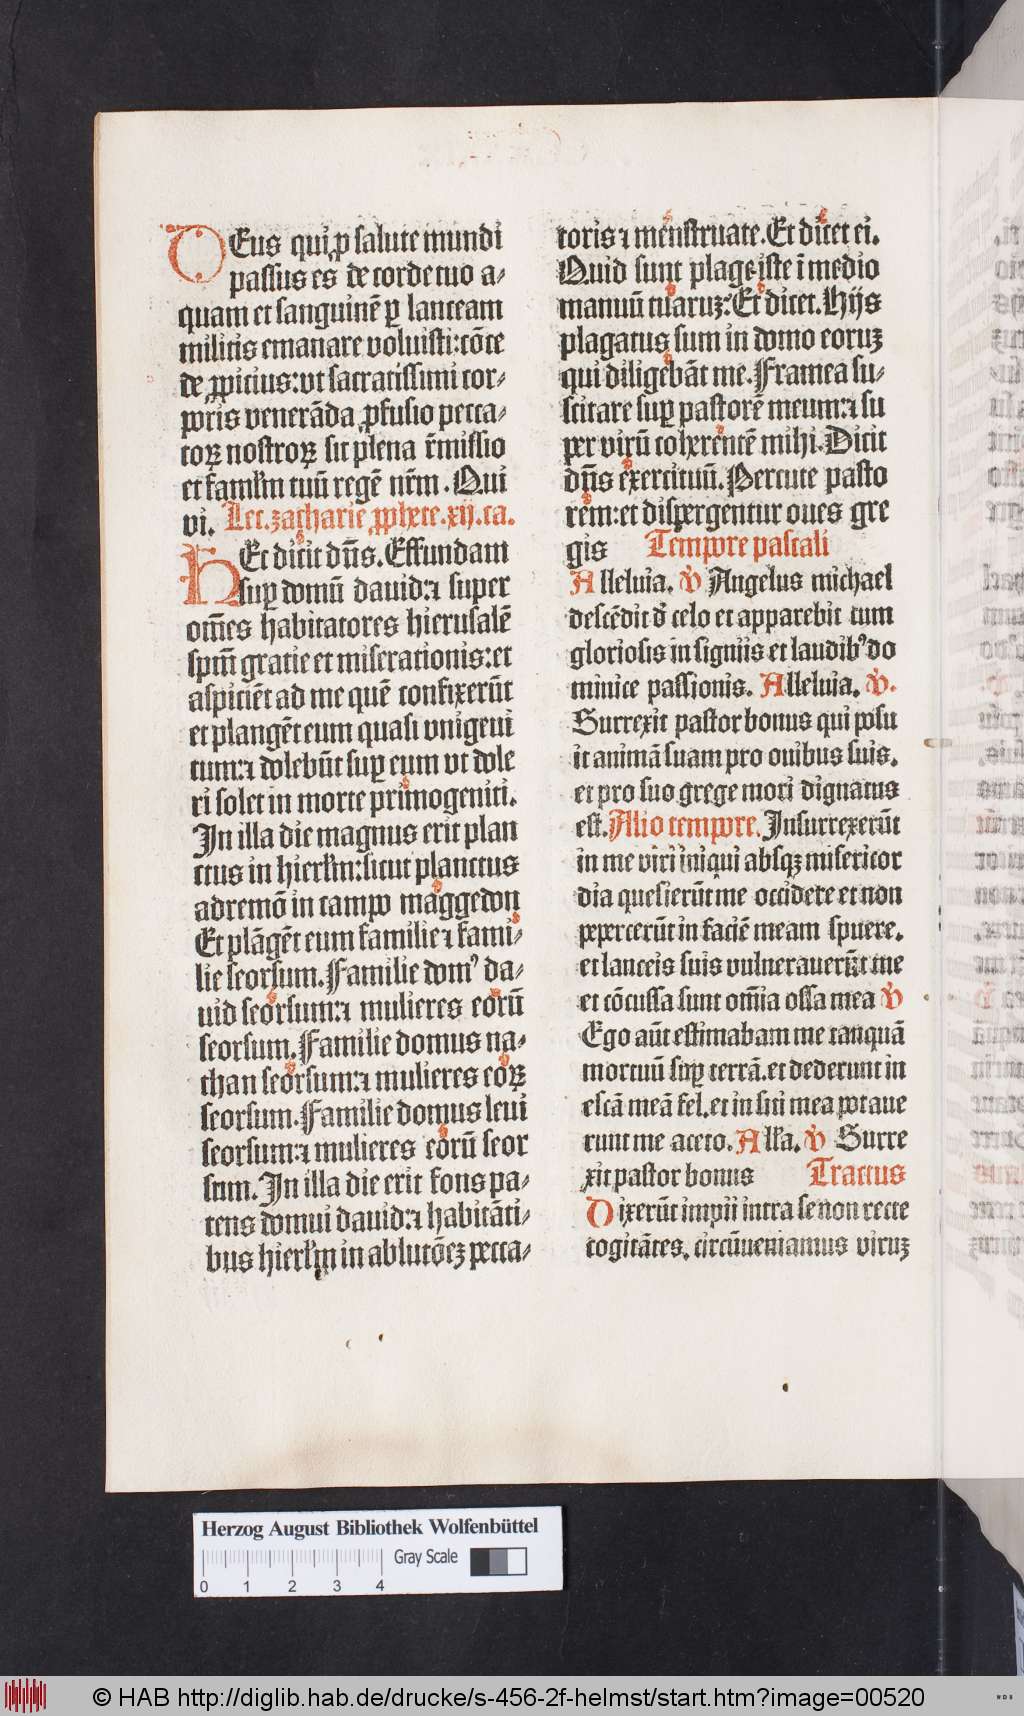 DEus qui ꝓ salute mundi
passus es de corde tuo a⸗
quam et sanguinē ꝑ lanceam
militis emanare voluisti: cōce
de ꝓpicius: vt sacratissimi cor⸗
poris venerāda ꝓfusio pecca⸗
toꝝ nostroꝝ sit plena r̄missio
et famłm tuū regē nr̄m. Qui
vi. Lec. zacharie ꝓphete. xij. ca.
HEc dicit dn̄s. Effundam
suꝑ domū dauid: ⁊ super
om̄es habitatores hierusalē
spm̄ gratie et miserationis: et
aspiciēt ad me quē confixerūt
et plangēt eum quasi vnigeni
tum: ⁊ dolebūt suꝑ eum vt dole
ri solet in morte primogeniti.
In illa die magnus erit plan
ctus in hierłm: sicut planctus
adremō in campo maggedon
Et plāgēt eum familie ⁊ fami⸗
lie seorsum. Familie domꝰ da⸗
uid seorsum: ⁊ mulieres eorū
seorsum. Familie domus na⸗
than seorsum: ⁊ mulieres eoꝝ
seorsum. Familie domus leui
seorsum: ⁊ mulieres eorū seor
sum. In illa die erit fons pa⸗
tens domui dauid: ⁊ habitāti⸗
bus hierłm in ablutōeꝫ pecca⸗
toris ⁊ menstruate. Et dicet ei.
Quid sunt plage iste ī medio
manuū tuaruꝫ: Et dicet. Hijs
plagatus sum in domo eoruꝫ
qui diligebāt me. Framea su⸗
scitare suꝑ pastorē meum: ⁊ su
per virū coherentē mihi. Dicit
dn̄s exercituū. Percute pasto
rem: et dispergentur oues gre
gis Tempore pascali
Alleluia. ℣ Angelus michael
descēdit d̄ celo et apparebit cum
gloriosis in signiis et laudibꝰ do
minice passionis. Alleluia. ℣.
Surrexit pastor bonus qui posu
it animā suam pro ouibus suis.
et pro suo grege mori dignatus
est. Alio tempore. Insurrexerūt
in me viri iniqui absqꝫ misericor
dia quesierūt me occidere et non
pepercerūt in faciē meam spuere.
et lanceis suis vulnerauerūt me
et cōcussa sunt om̄ia ossa mea ℣
Ego aūt estimabam me tanquā
mortuū suꝑ terrā. et dederunt in
escā meā fel. et in siti mea potaue
runt me aceto. Alła. ℣ Surre
xit pastor bonus Tractus
Dixerūt impii intra se non recte
cogitātes. circūueniamus viruꝫ
Herzog August Bibliothek Wolfenbüttel
Gray Scale
0 1 2 3 4
© HAB http://diglib.hab.de/drucke/s-456-2f-helmst/start.htm?image=00520